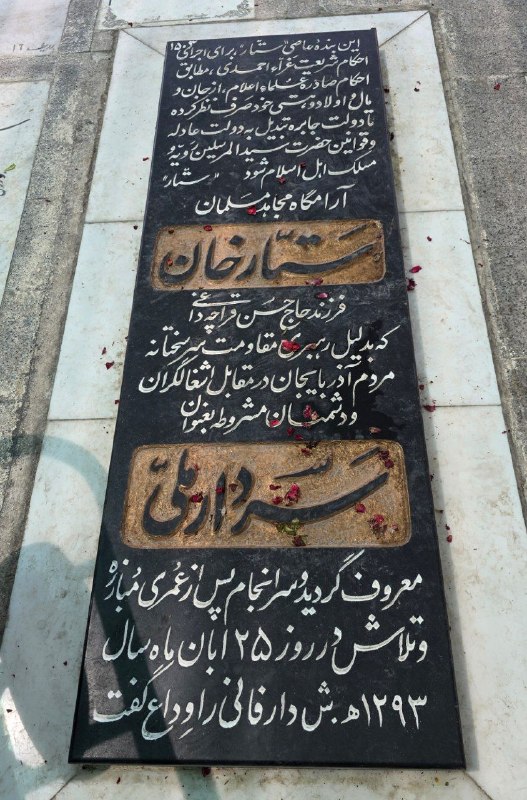 این بنده عاصی "ستار" برای اجرای
احکام شریعت غرّاء احمدی، مطابق
احکام صادره علماء اعلام، از جان و
مال و اولاد و هستی خود صرف نظر کرده
تا دولت جابره تبدیل به دولت عادله
و قوانین حضرت سیدالمرسلین رویّه و
مسلک اهل اسلام شود "ستار"
آرامگاه مجاهد مسلمان
ستّارخان
فرزند حاج حسن قراچه داغی
که بدلیل رهبری مقاومت سرسختانه
مردم آذربایجان در مقابل اشغالگران
و دشمنان مشروطه بعنوان
سردار ملّی
معروف گردید و سرانجام پس از عُمری مُبارزه
و تلاش در روز ۲۵ آبان ماه سال
۱۲۹۳ ه‍.ش دار فانی را وداع گفت